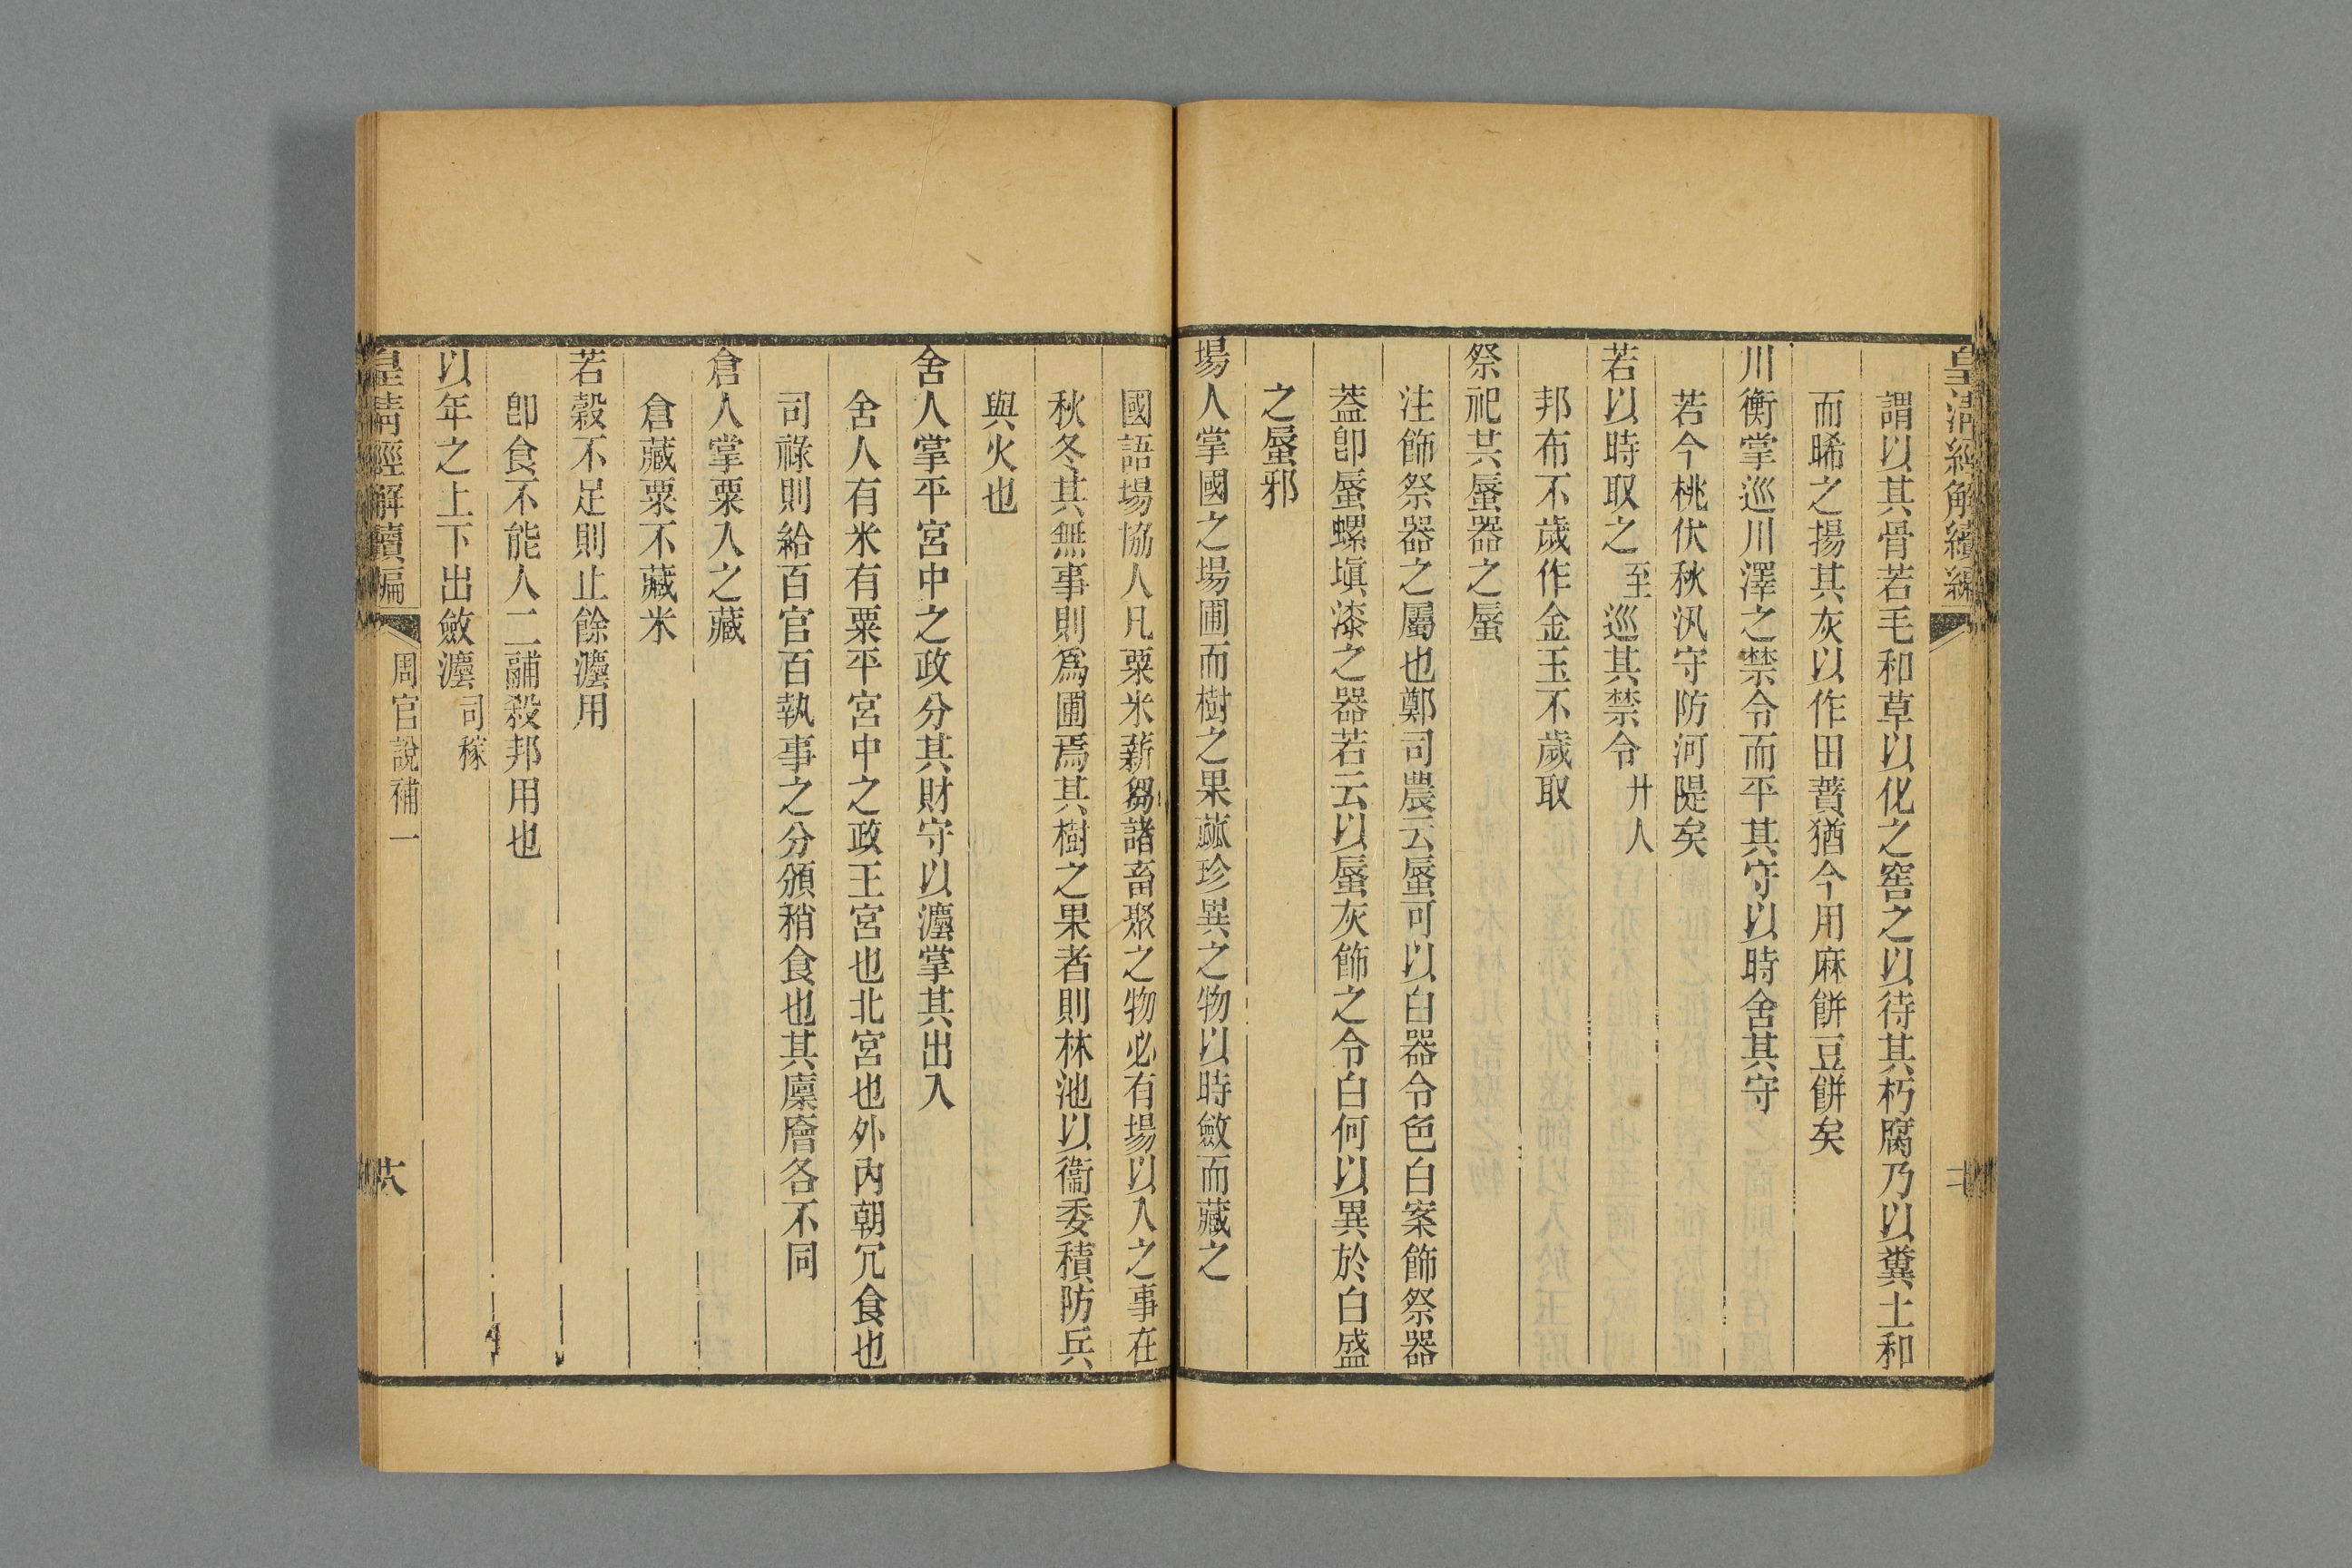 皇清經解續編
謂以其骨若毛和草以化之窖之以待其朽腐乃以糞土和
而晞之揚其灰以作田蕡猶今用麻餅豆餅矣
川衡掌巡川澤之禁令而平其守以時舍其守
若今桃伏秋汛守防河隄矣
若以時取之至巡其禁令卝人
邦布不歲作金玉不歲取
祭祀共蜃器之蜃
注飾祭器之屬也鄭司農云蜃可以白器令色白案飾祭器
葢卽蜃螺塡漆之器若云以蜃灰飾之令白何以異於白盛
之蜃邪
場人掌國之場圃而樹之果蓏珍異之物以時斂而藏之
國語場協人凡粟米薪芻諸畜聚之物必有場以入之事在
秋冬其無事則爲圃焉其樹之果者則林池以衞委積防兵
與火也
舍人掌平宮中之政分其財守以灋掌其出入
舍人有米有粟平宮中之政王宮也北宮也外內朝冗食也
司祿則給百官百執事之分頒稍食也其廩廥各不同
倉人掌粟入之藏
倉藏粟不藏米
若穀不足則止餘灋用
卽食不能人二鬴殺邦用也
以年之上下出斂灋司稼
皇清經解續編
周官說補一
六